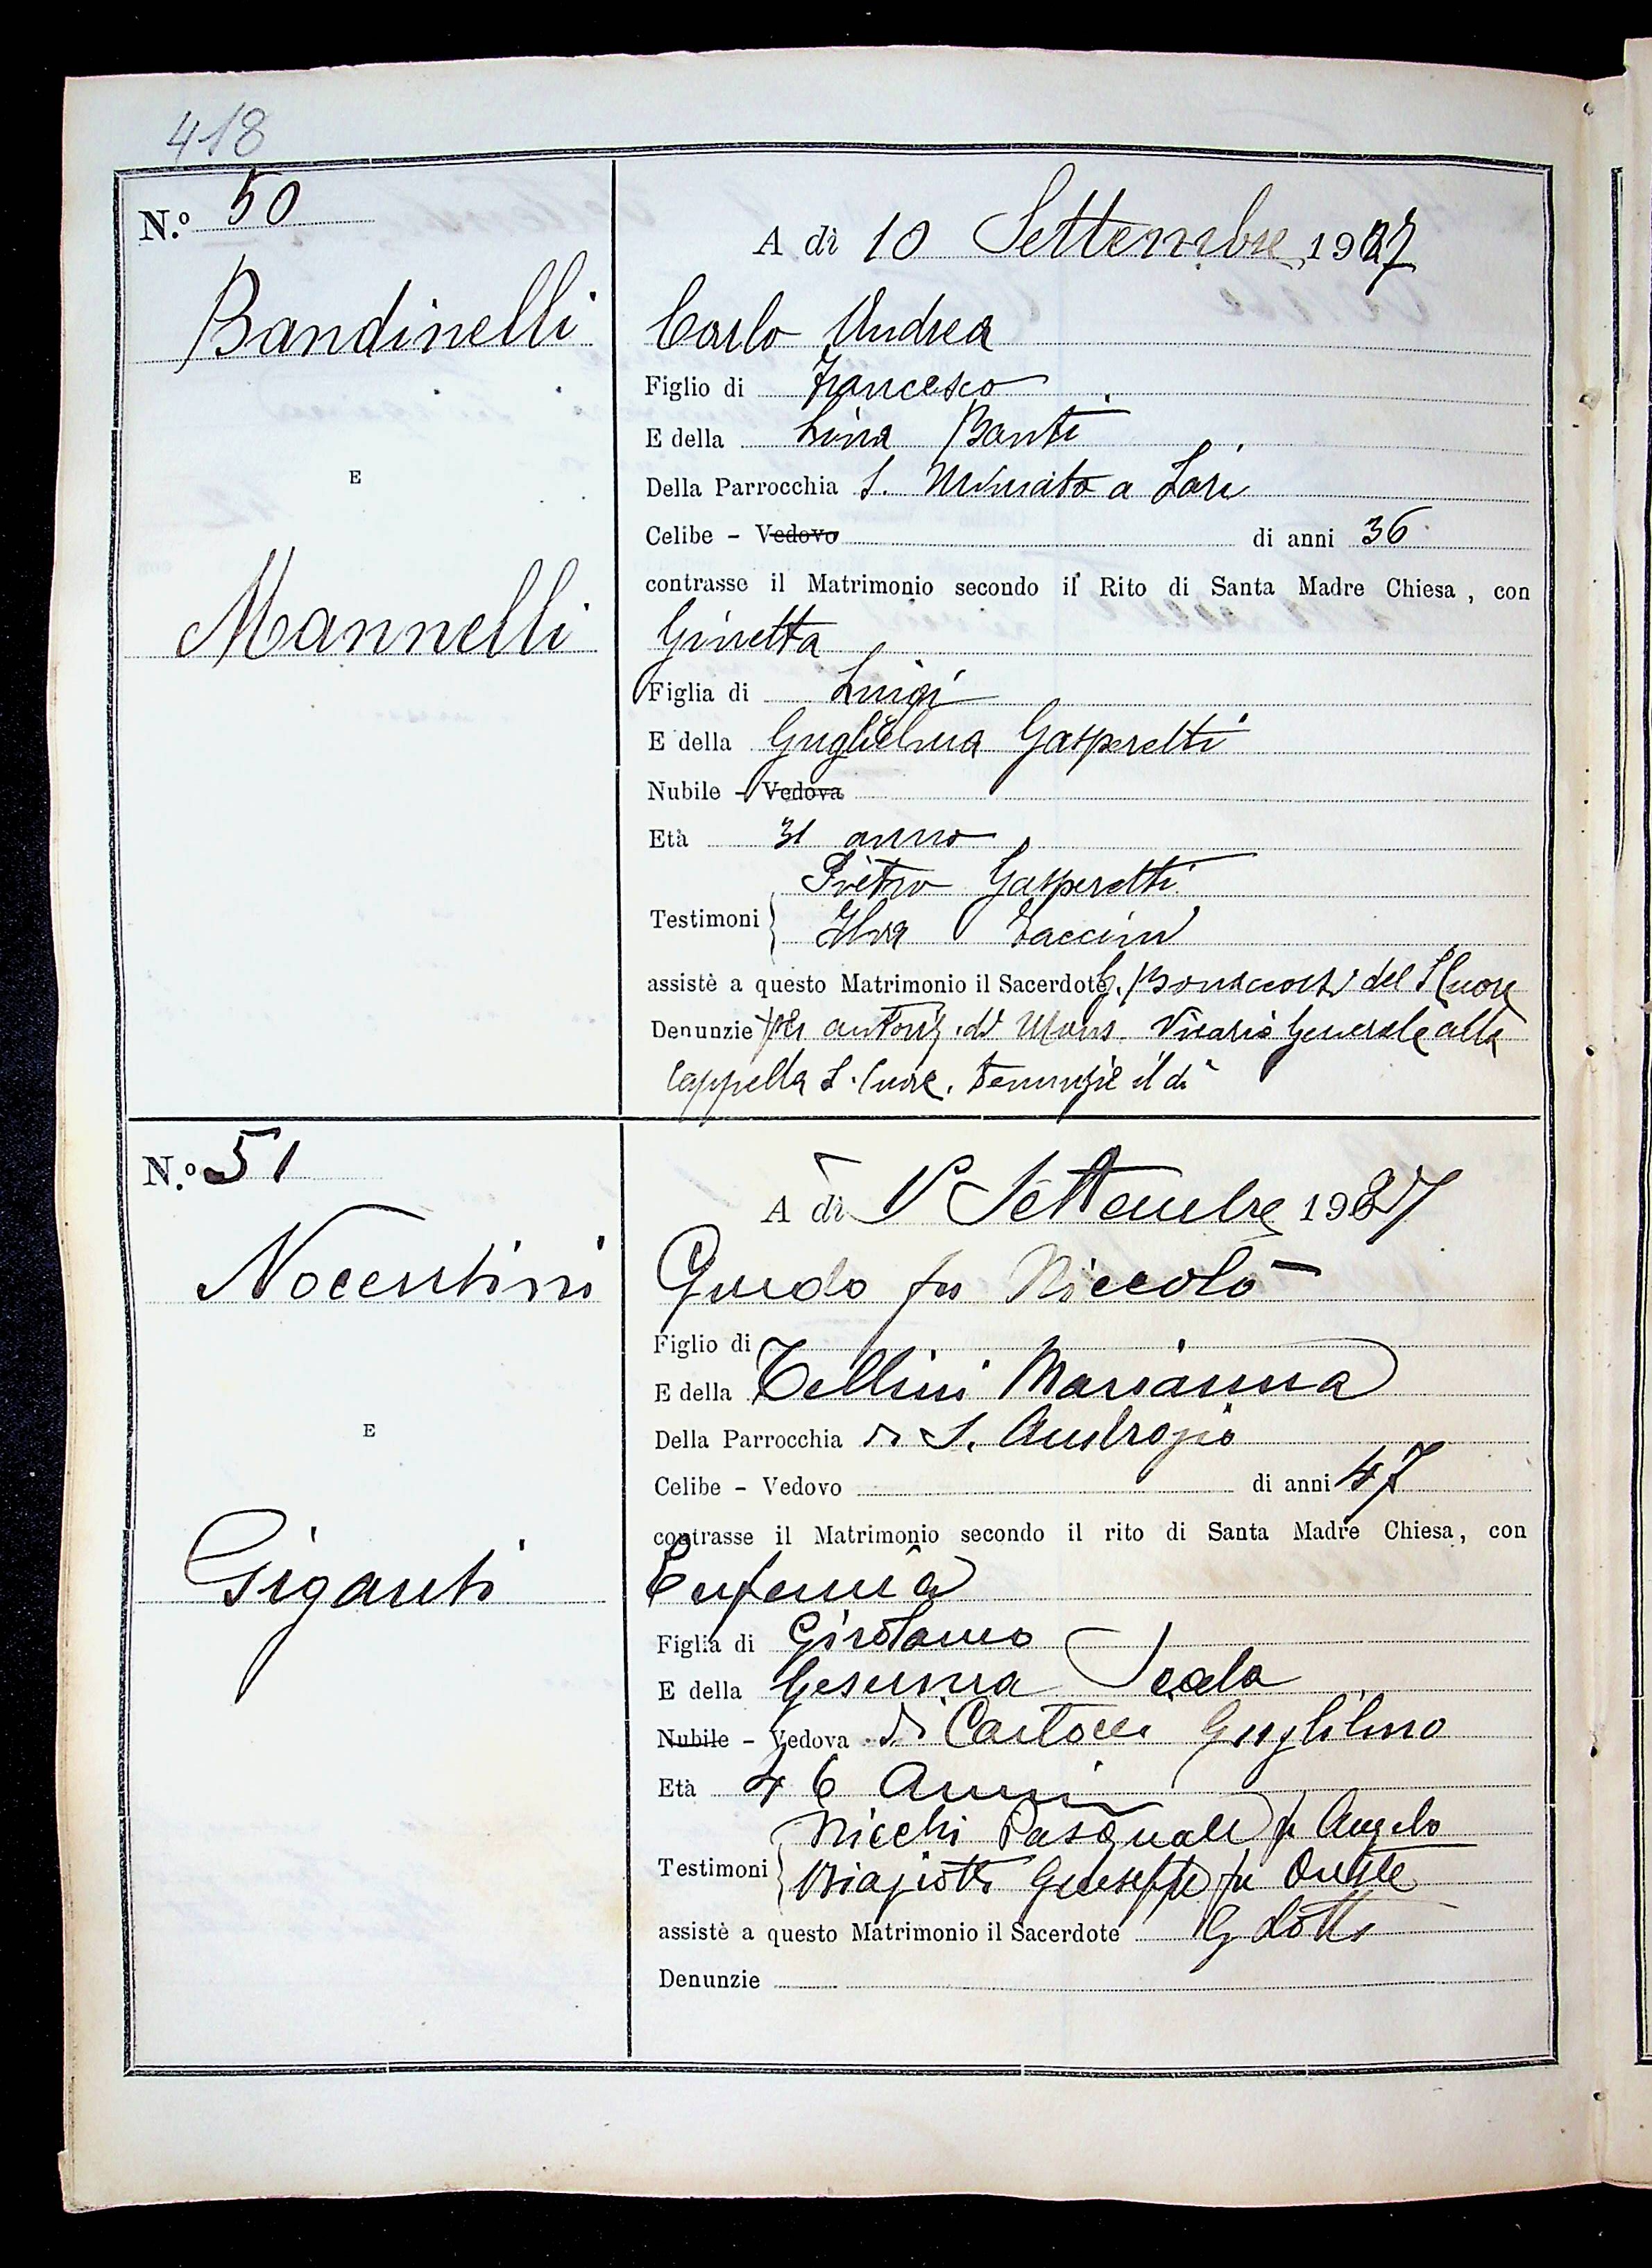 418
N.º 50
A dì 10 Settembre 1927
Bandinelli
Carlo Andrea
Figlio di Francesco
E della Lina Banti
E
Della Parrocchia S. Miniato a
Celibe - Vedovo di anni 36
contrasse il Matrimonio secondo il Rito di Santa Madre Chiesa, con
Mannelli
Ginetta
Figlia di Luigi
E della Guglielma Gasperetti
Nubile - Vedova
Età 31 anno
Pietro Gasperetti
Testimoni
assistè a questo Matrimonio il Sacerdote G. del S Cuore
Denunzie per autoriz. di Mons. Vicario Generale alla
Cappella S. Cuore. Denunzie il dì
N.º 51
A dì Settembre 1937
Nocentini
Guido fu Niccolò
Figlio di
E della Tellini Marianna
E
Della Parrocchia di S. Ambrogio
Celibe - Vedovo di anni 47
contrasse il Matrimonio secondo il rito di Santa Madre Chiesa, con
Giganti
Eufemia
Figlia di Girolamo
E della Gesuina Scala
Nubile - Vedova di Cartocci Guglilmo
Età 46 Anni
Nicchi Pasquale fu Angelo
Testimoni Biagiotti Giuseppe fu Oreste
assistè a questo Matrimonio il Sacerdote G Lotti
Denunzie